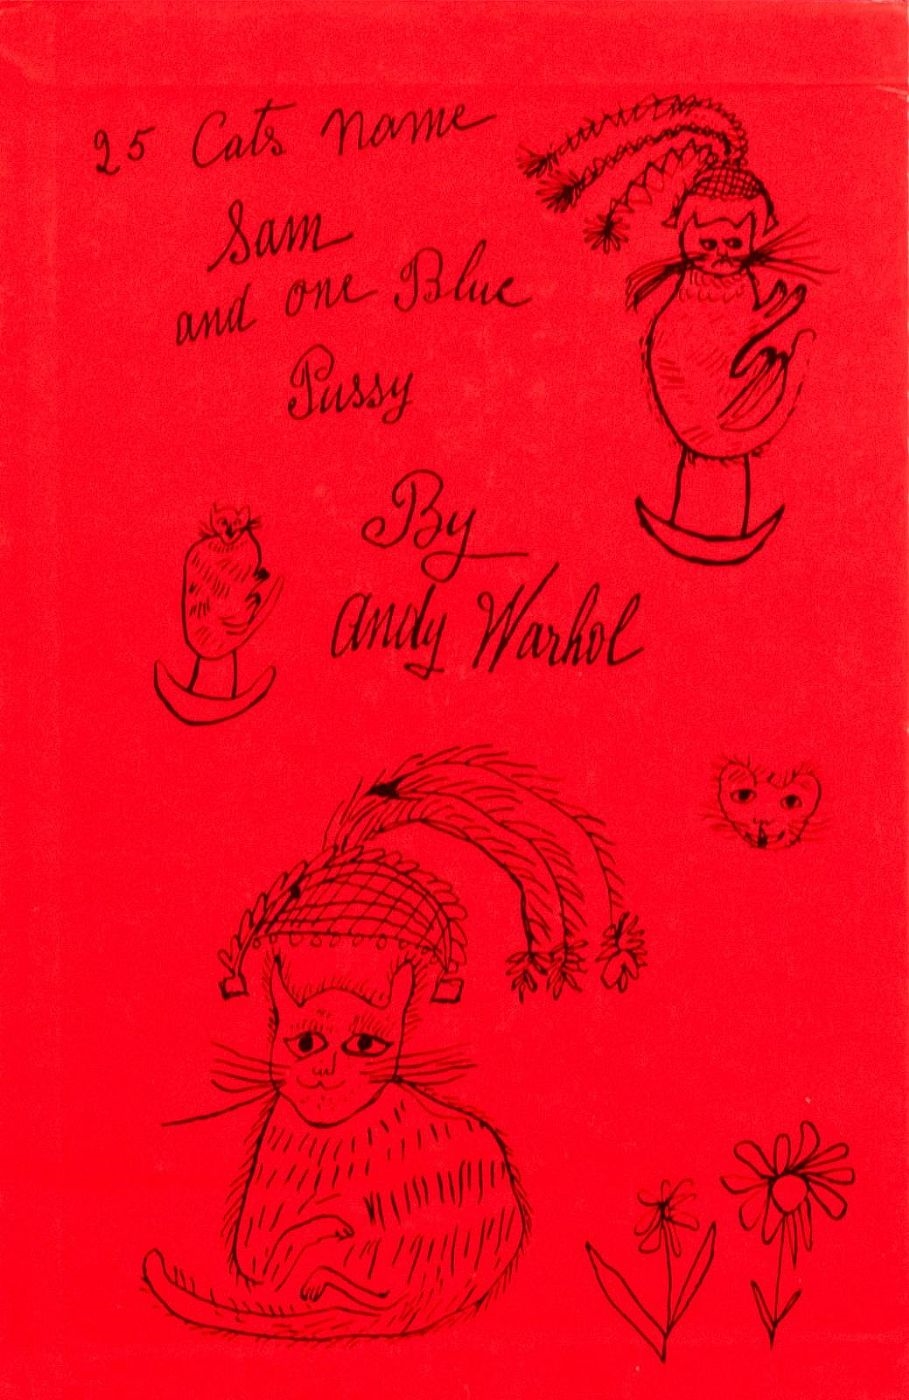 25 Cats name
Sam
and one Blue
Pussy
By
Andy Warhol